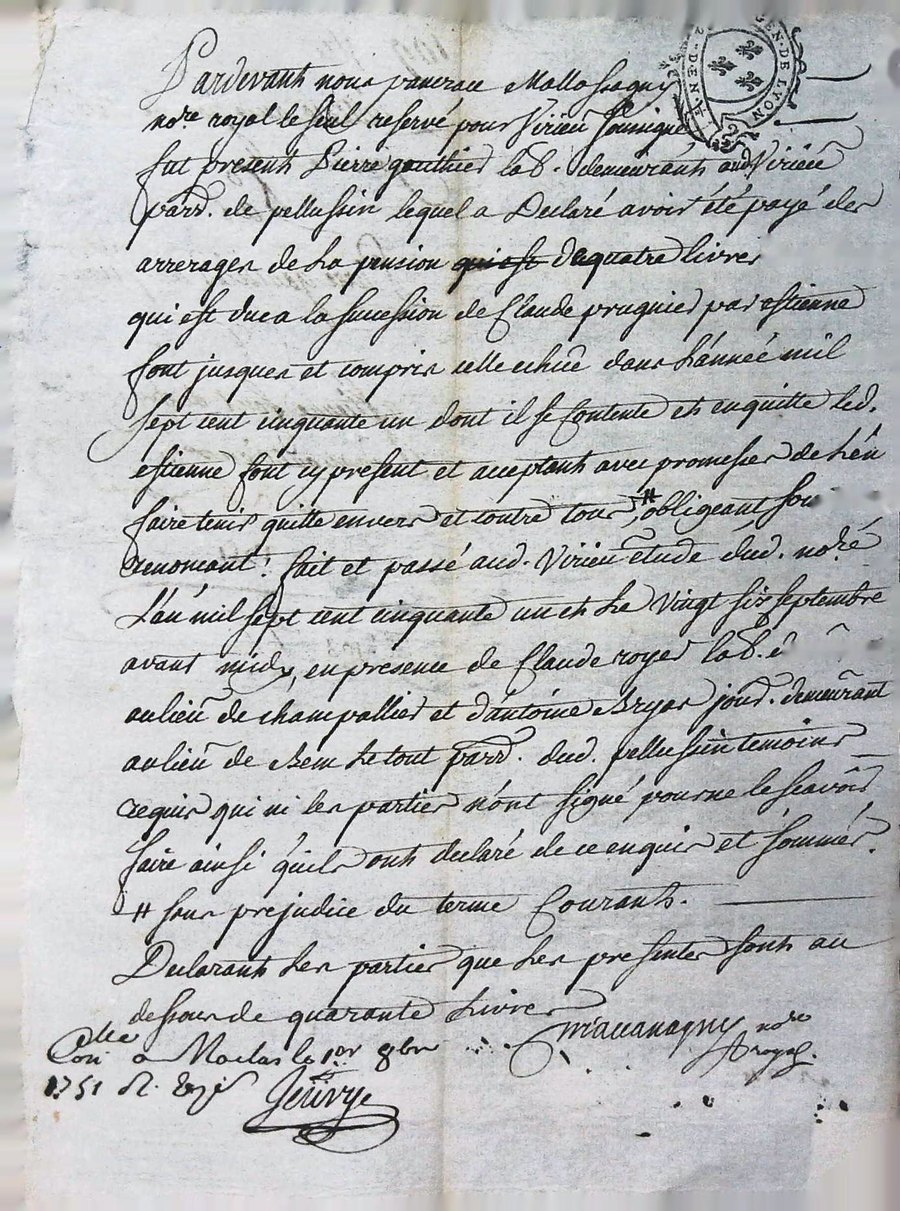 GEN. DE LYON
2 D. E N.
Pardevant nous
no.re royal le seul reservé pour Virieu soussigné
fut present Pierre gauthier lab. demeurant aud. Virieu
parr. de pellussin lequel a Declaré avoir été payé des
arrerages de La pension qui est de quatre livres
qui est due a la succession de Claude prugnier par estienne
font jusques et compris celle echue dans L'année mil
sept cent cinquante un dont il se Contente et en quitte led.
estienne font cy present et acceptant avec promesses de L'en
faire tenir quitte envers et contre tous, # obligeant
renoncant: fait et passé aud. Virieu étude dud. no.re
L'an mil sept cent cinquante un et Le Vingt six septembre
avant midy, en presence de Claude royer lab.
au lieu de champallier et d'antoine jour. demeurant
au lieu de Bem Le tout parr. dud. pellussin temoins
requis qui ni les parties n'ont signé pour ne le scavoir
faire ainsi qu'ils ont declaré de ce enquis et sommés.
# sans prejudice du terme Courant.
Declarant Les parties que Les presentes sont au
dessous de quarante Livres
no.re
royal.
a Maclas le 1er 8bre
1751